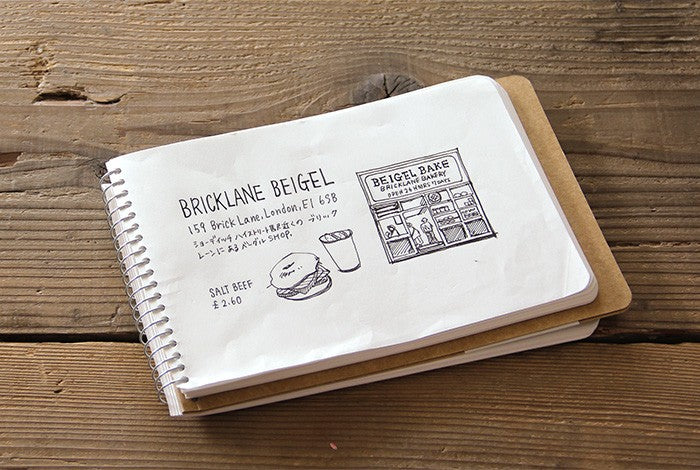 BRICKLANE BEIGEL
159 Brick Lane, London, E1 6SB
ショーディッチ ハイストリート駅近くの ブリック
レーンにある ベーグル SHOP.
SALT BEEF
£ 2.60
BEIGEL BAKE
BRICKLANE BAKERY
OPEN 24 HOURS 7 DAYS